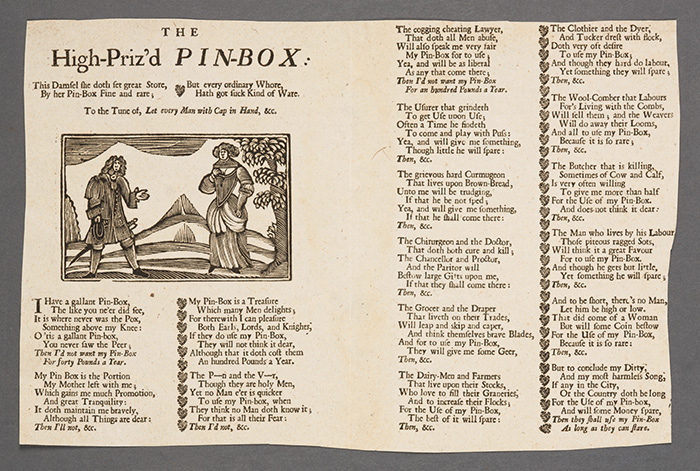 THE
High-Priz'd PIN-BOX:
This Damsel she doth set great Store,
By her Pin-Box Fine and rare;
But every ordinary Whore,
Hath got such Kind of Ware.
To the Tune of, Let every Man with Cap in Hand, &c.
I Have a gallant Pin-Box,
The like you ne'er did see,
It is where never was the Pox,
Something above my Knee:
O 'tis a gallant Pin-box,
You never saw the Peer;
Then I'd not want my Pin-Box
For forty Pounds a Year.
My Pin-Box is the Portion
My Mother left with me;
Which gains me much Promotion,
And great Tranquility:
It doth maintain me bravely,
Although all Things are dear:
Then I'll not, &c.
My Pin-Box is a Treasure
Which many Men delights;
For therewith I can pleasure
Both Earls, Lords, and Knights,
If they do use my Pin-Box,
They will not think it dear,
Although that it doth cost them
An hundred Pounds a Year.
The P—n and the V—r,
Though they are holy Men,
Yet no Man e'er is quicker
To use my Pin-box, when
They think no Man doth know it;
For that is all their Fear:
Then I'd not, &c.
The cogging cheating Lawyer,
That doth all Men abuse,
Will also speak me very fair
My Pin-Box for to use;
Yea, and will be as liberal
As any that come there;
Then I'd not want my Pin-Box
For an hundred Pounds a Year.
The Usurer that grindeth
To get Use upon Use;
Often a Time he findeth
To come and play with Puss:
Yea, and will give me something,
Though little he will spare:
Then, &c.
The grievous hard Curmugeon
That lives upon Brown-Bread,
Unto me will be trudging,
If that he be not sped;
Yea, and will give me something,
If that he shall come there:
Then, &c.
The Chirurgeon and the Doctor,
That doth both cure and kill;
The Chancellor and Proctor,
And the Paritor will
Bestow large Gifts upon me,
If that they shall come there:
Then, &c.
The Grocer and the Draper
That liveth on their Trades,
Will leap and skip and caper,
And think themselves brave Blades,
And for to use my Pin-Box,
They will give me some Geer,
Then, &c.
The Dairy-Men and Farmers
That live upon their Stocks,
Who love to fill their Graneries,
And to increase their Flocks;
For the Use of my Pin-Box,
The best of it will spare:
Then, &c.
The Clothier and the Dyer,
And Tucker drest with flock,
Doth very oft desire
To use my Pin-Box;
And though they hard do labour,
Yet something they will spare;
Then, &c.
The Wool-Comber that Labours
For's Living with the Combs,
Will sell them; and the Weavers
Will do away their Looms,
And all to use my Pin-Box,
Because it is so rare;
Then, &c.
The Butcher that is killing,
Sometimes of Cow and Calf,
Is very often willing
To give me more than half
For the Use of my Pin-Box.
And does not think it dear:
Then, &c.
The Man who lives by his Labour
Those piteous ragged Sots,
Will think it a great Favour
For to use my Pin-Box.
And though he gets but little,
Yet something he will spare;
Then, &c.
And to be short, there's no Man,
Let him be high or low.
That did come of a Woman
But will some Coin bestow
For the Use of my Pin-Box,
Because it is so rare:
Then, &c.
But to conclude my Ditty,
And my most harmless Song,
If any in the City,
Or the Country doth belong
For the Use of my Pin-box,
And will some Money spare,
Then they shall use my Pin-Box
As long as they can stare.